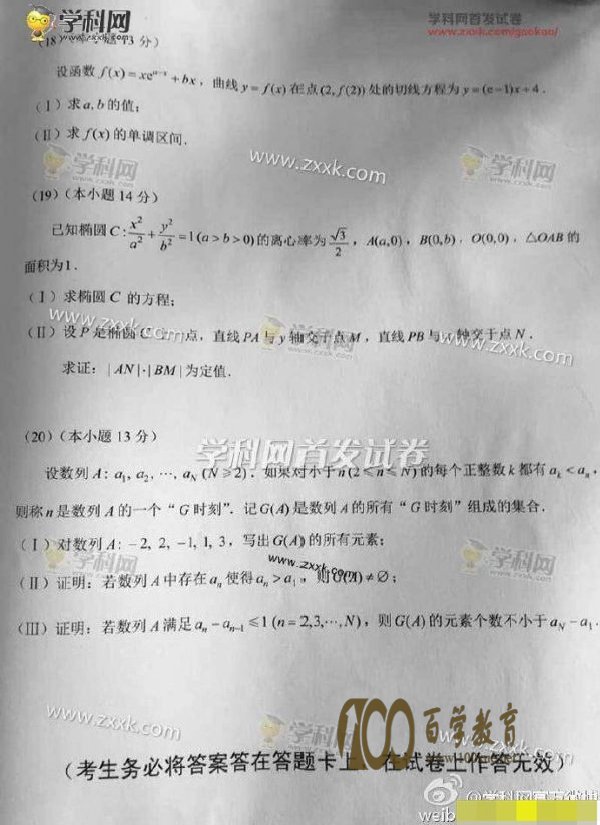 学科网
www.zxxk.com
学科网首发试卷
www.zxxk.com/gaokao/
(18)(本小题13分)
设函数 f(x)=xe^{a-x}+bx，曲线 y=f(x) 在点(2,f(2)) 处的切线方程为 y=(e-1)x+4.
(Ⅰ)求a,b的值;
(Ⅱ)求 f(x) 的单调区间.
学科网
www.zxxk.com
学科网
(19)(本小题14分)
已知椭圆 C: x²/a²+y²/b²=1(a>b>0)的离心率为 √3/2，A(a,0)，B(0,b)，O(0,0)，△OAB 的
面积为1.
(Ⅰ)求椭圆 C 的方程;
www.zxxk.com
(Ⅱ)设 P 是椭圆 C 一点，直线 PA 与 y 轴交于点 M，直线 PB 与 轴交于点 N.
学科网
www.zxxk.com
求证: |AN|·|BM| 为定值.
(20)(本小题13分)
学科网首发试卷
设数列 A: a₁, a₂, ⋯, a_N (N≥2). 如果对小于 n(2≤n≤N) 的每个正整数 k 都有 a_k < a_n，
则称 n 是数列 A 的一个“G 时刻”. 记 G(A) 是数列 A 的所有“G 时刻”组成的集合.
(Ⅰ)对数列 A: -2, 2, -1, 1, 3，写出 G(A) 的所有元素;
学科网
www.zxxk.com
学科网
(Ⅱ)证明: 若数列 A 中存在 a_n 使得 a_n > a₁，则 G(A) ≠ ∅;
(Ⅲ)证明: 若数列 A 满足 a_n - a_{n-1} ≤ 1 (n=2,3,⋯,N)，则 G(A) 的元素个数不小于 a_N - a₁.
www.zxxk.com
学科网
100百学教育
(考生务必将答案答在答题卡上 在试卷上作答无效)
@学科网官方微博
weib